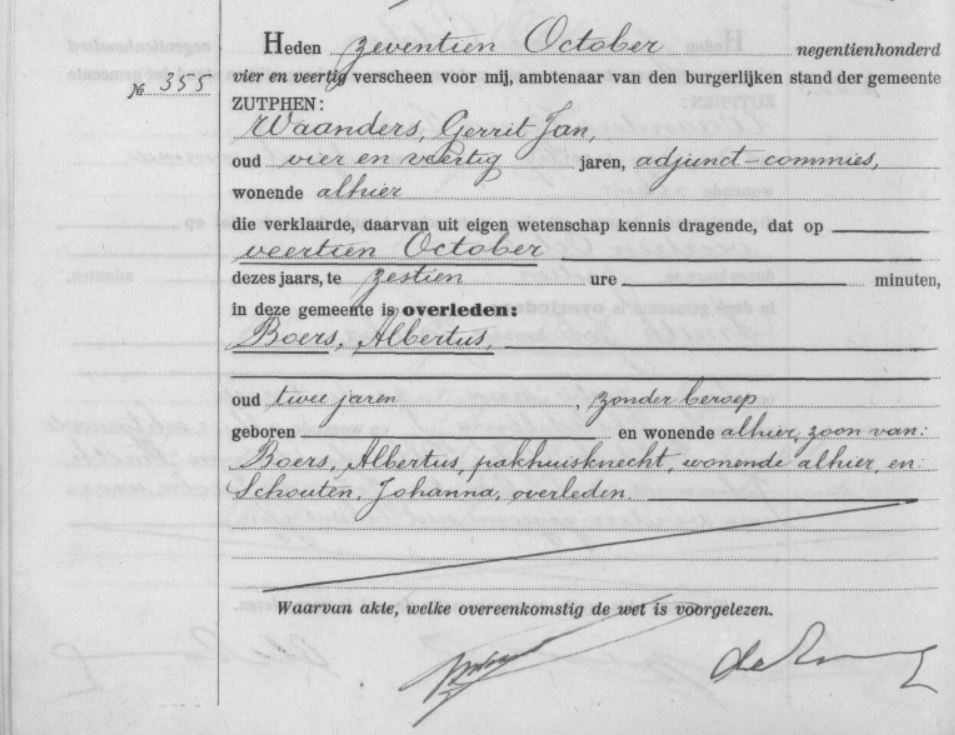 Heden zeventien October negentienhonderd
vier en veertig verscheen voor mij, ambtenaar van den burgerlijken stand der gemeente
№ 355
ZUTPHEN:
Waanders, Gerrit Jan,
oud vier en veertig jaren, adjunct-commies,
wonende alhier
die verklaarde, daarvan uit eigen wetenschap kennis dragende, dat op
veertien October
dezes jaars, te zestien ure minuten,
in deze gemeente is overleden:
Boers, Albertus,
oud twee jaren, zonder beroep
geboren en wonende alhier, zoon van:
Boers, Albertus, pakhuisknecht, wonende alhier, en:
Schouten, Johanna, overleden.
Waarvan akte, welke overeenkomstig de wet is voorgelezen.